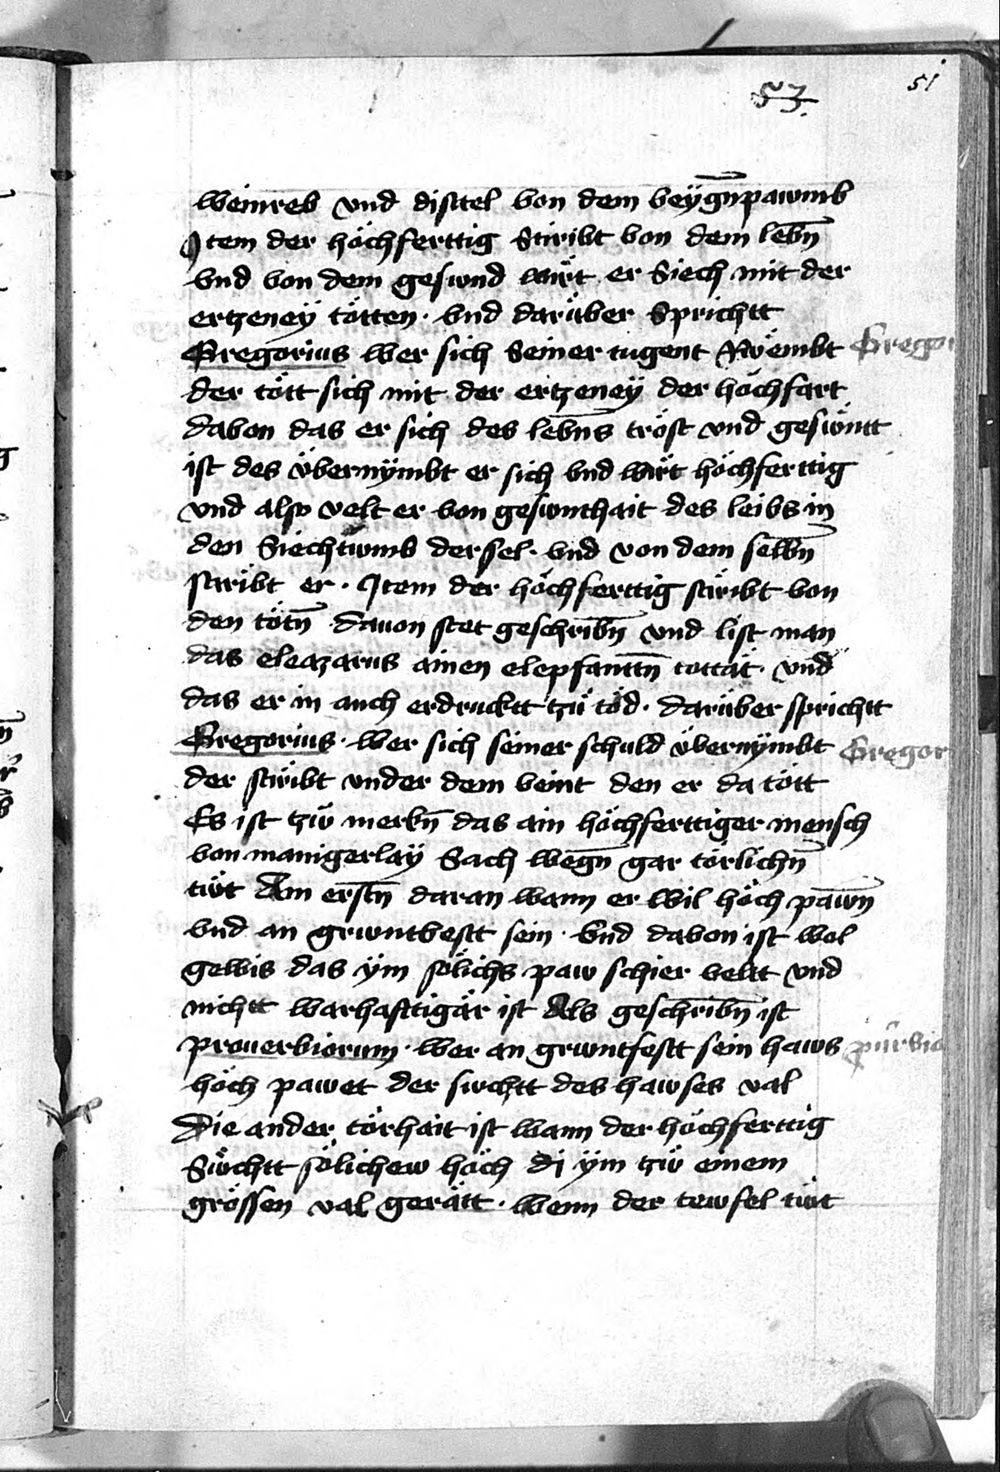 51
53.
weinreb vnd disttel von dem veygn̄pawmb
Item der höchferttig Stiribt von dem lebn̄
vnd von dem geswnd wirt er Siech mit der
ertzeneÿ tötten · vnd darüber Sprichtt
Gregorius wer sich Seiner tugent Rüembt Gregor
der tött sich mit der ertzeneÿ der höchfart
davon das er sich des lebn̄s tröst vnd geswntt
ist des übernÿmbt er sich vnd wirt höchferttig
vnd also velt er von geswnthait des leibs in
den Siechtwmb der sel · vnd von dem selbn̄
stiribt er · Item der höchferttig stiribt von
den tötn̄ Dauon stet geschribn̄ vnd list man
das eleazarus ainen elepfanttn̄ tottät · vnd
das er in auch erdrucktt tzü töd · darüber sprichtt
Gregorius · wer sich seiner schuld übernÿmbt Gregor
der stiribt vnder dem veint den er da tött
Es ist tzw̆ merkn̄ das ain höchferttiger mensch
von manigerlaÿ Sach wegn̄ gar törlichn̄
twt Am erstn̄ daran wann er wil höch pawn̄
vnd an grwntvestt sein · Vnd davon ist wol
gewis das ÿm sölichs paw schier veltt vnd
nichtt warhafttigär ist Als geschribn̄ ist
prouerbiorum · wer an grwntfestt sein haws pūrbio
höch pawet der swchtt des hawses val
Die ander törhait ist wann der höchferttig
Swchtt sölichew höch di ÿm tzw̆ einem
grössen val gerätt · wenn der tewfel twt